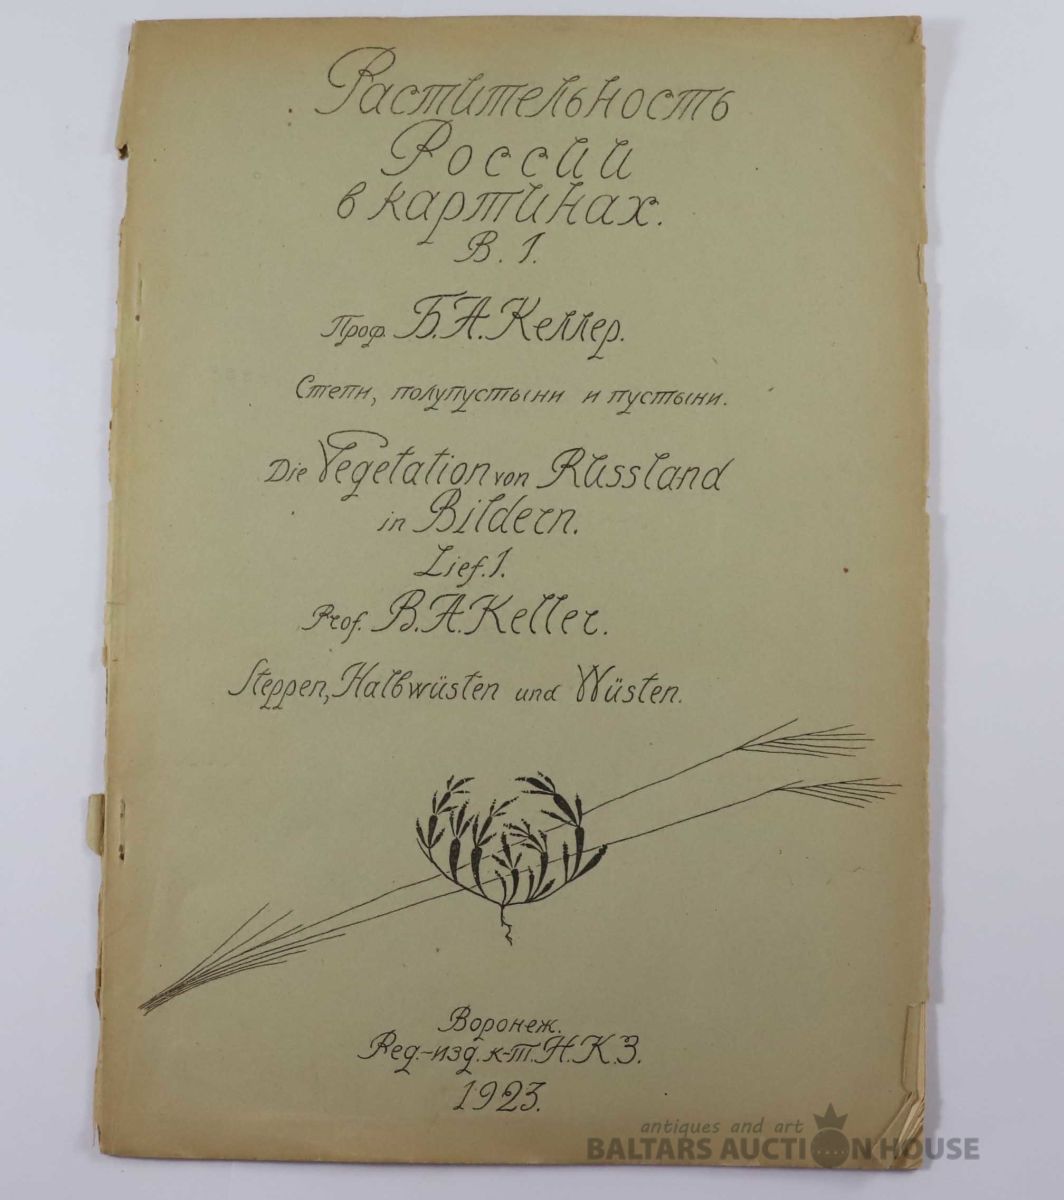 Растительность
России
в картинах.
В. 1.
Проф. Б. А. Келлер.
Степи, полупустыни и пустыни.
Die Vegetation von Russland
in Bildern.
Lief. 1.
Prof. B. A. Keller.
Steppen, Halbwüsten und Wüsten.
Воронеж.
Ред.-изд. к-т. Н. К. З.
1923.
antiques and art
BALTARS AUCTION HOUSE